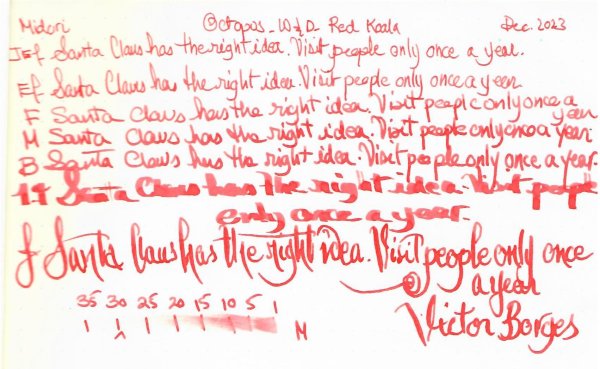 Midori Octopus - W&D Red Koala Dec. 2023
JEf Santa Claus has the right idea. Visit people only once a year.
Ef Santa Claus has the right idea. Visit people only once a year
F Santa Claus has the right idea. Visit people only once a year
M Santa Claus has the right idea. Visit people only once a year
B Santa Claus has the right idea. Visit people only once a year.
1.1 Santa Claus has the right idea. Visit people
only once a year.
f Santa Claus has the right idea. Visit people only once
a year
35 30 25 20 15 10 5 1
M
Victor Borges